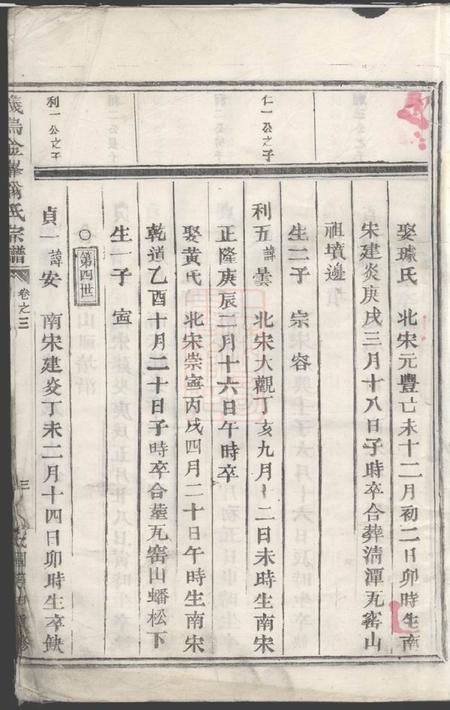 娶璩氏 北宋元豐亡未十二月初二日卯時生南
宋建炎庚戌三月十八日子時卒合葬清潭瓦窑山
祖墳邊
仁一公之子
生二子 宗 容
利五 諱曇 北宋大觀丁亥九月十二日未時生南宋
正隆庚辰二月十六日午時卒
娶黃氏 北宋崇寧丙戌四月二十日午時生南宋
乾道乙酉十月二十日子時卒合塟瓦窑山蟠松下
生一子 寊
〇 第四世
利一公之子
貞一 諱安 南宋建炎丁未二月十四日卯時生卒缺
宗譜
卷之三
三